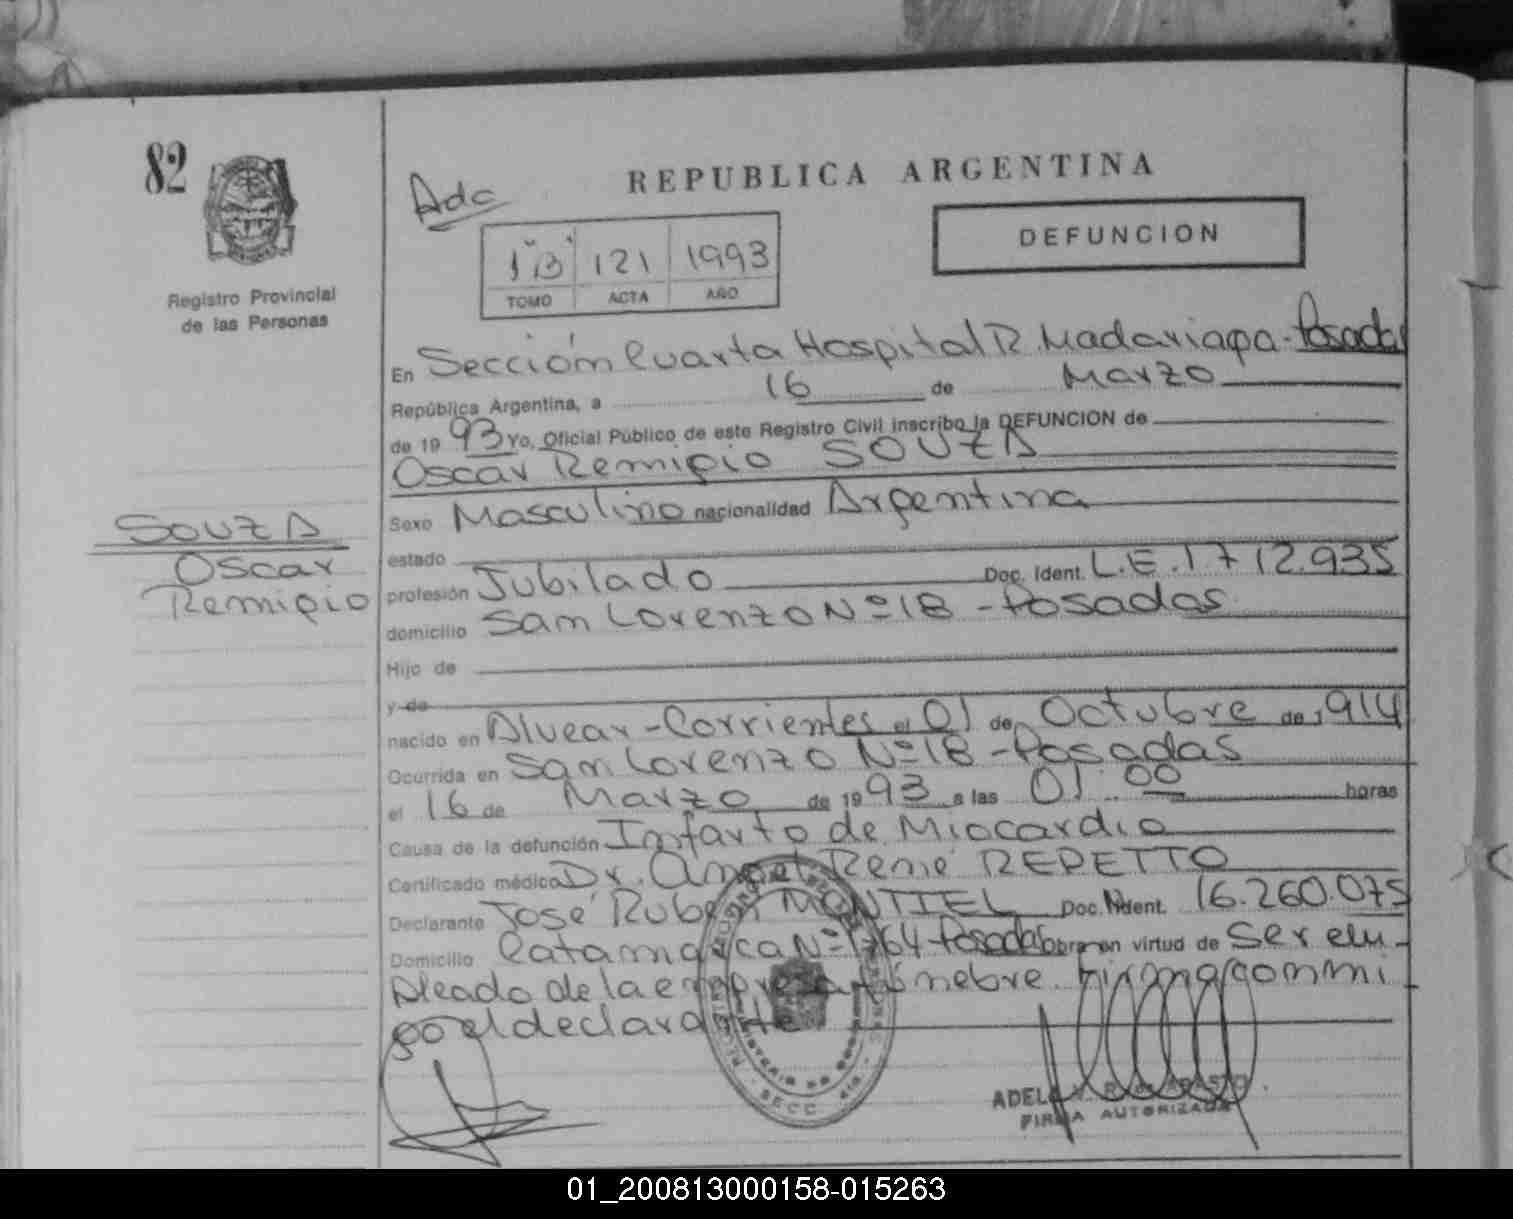 82
Registro Provincial
de las Personas
Adc
REPUBLICA ARGENTINA
1 "B" 121 1993
TOMO ACTA AÑO
DEFUNCION
En Sección Cuarta Hospital R. Madariaga - Posadas
República Argentina, a 16 de Marzo
de 19 93 Yo, Oficial Público de este Registro Civil inscribo la DEFUNCION de
Oscar Remigio SOUZA
SOUZA
Oscar
Remigio
Sexo Masculino nacionalidad Argentina
estado
profesión Jubilado Doc. Ident. L.E. 1.712.935
domicilio San Lorenzo Nº 18 - Posadas
Hijo de
y de
nacido en Alvear - Corrientes el 01 de Octubre de 1914
Ocurrida en San Lorenzo Nº 18 - Posadas
el 16 de Marzo de 19 93 a las 01:00 horas
Causa de la defunción Infarto de Miocardio
Certificado médico Dr. Angel René REPETTO
Declarante José Ruben MONTIEL Doc. Ident. 16.260.075
Domicilio Catamarca Nº 1764 - Posadas obra en virtud de Ser em-
pleado de la empresa fúnebre. Firma conmi
go el declarante
SECC. 4ta.
ADELA
FIRMA AUTORIZADA
01_200813000158-015263